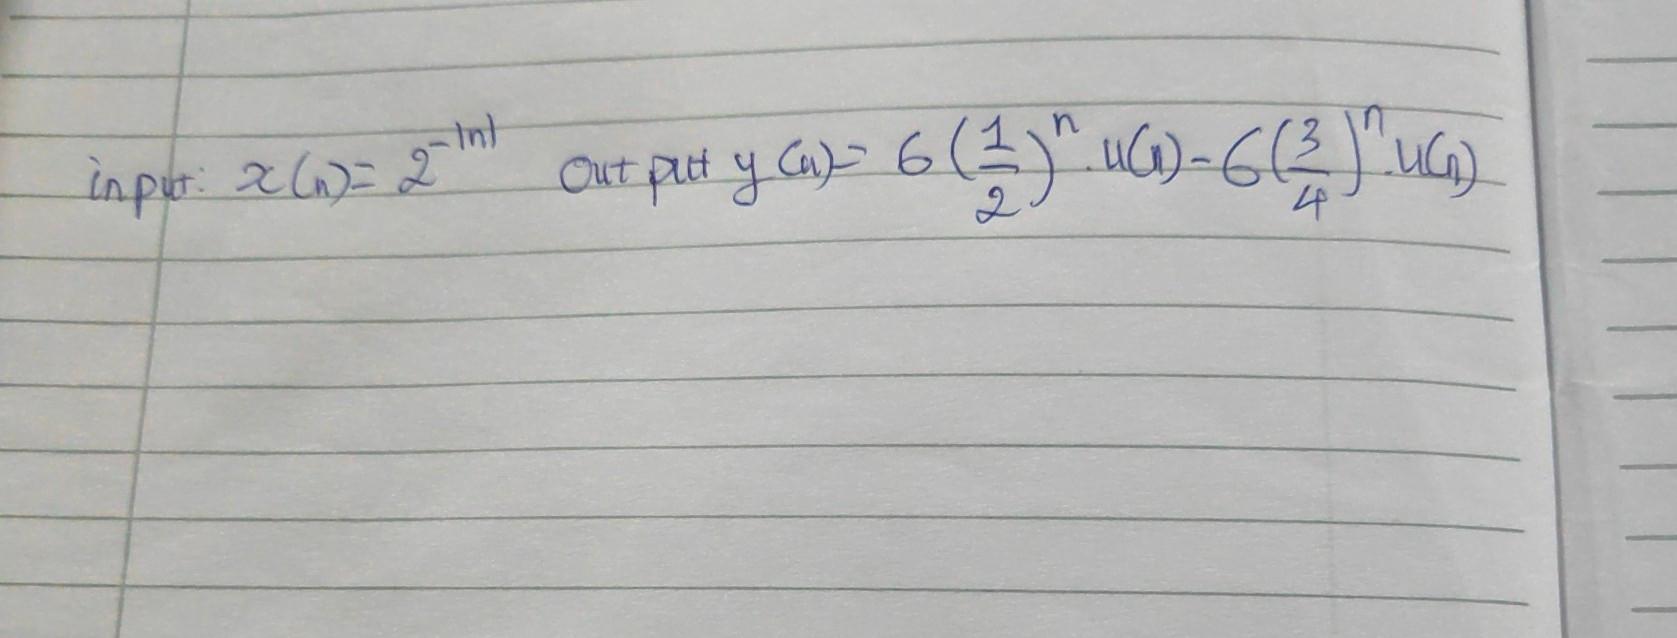 input: x(n)= 2^{-|n|} Output y(n)= 6(1/2)^n . u(n) - 6(3/4)^n . u(n)